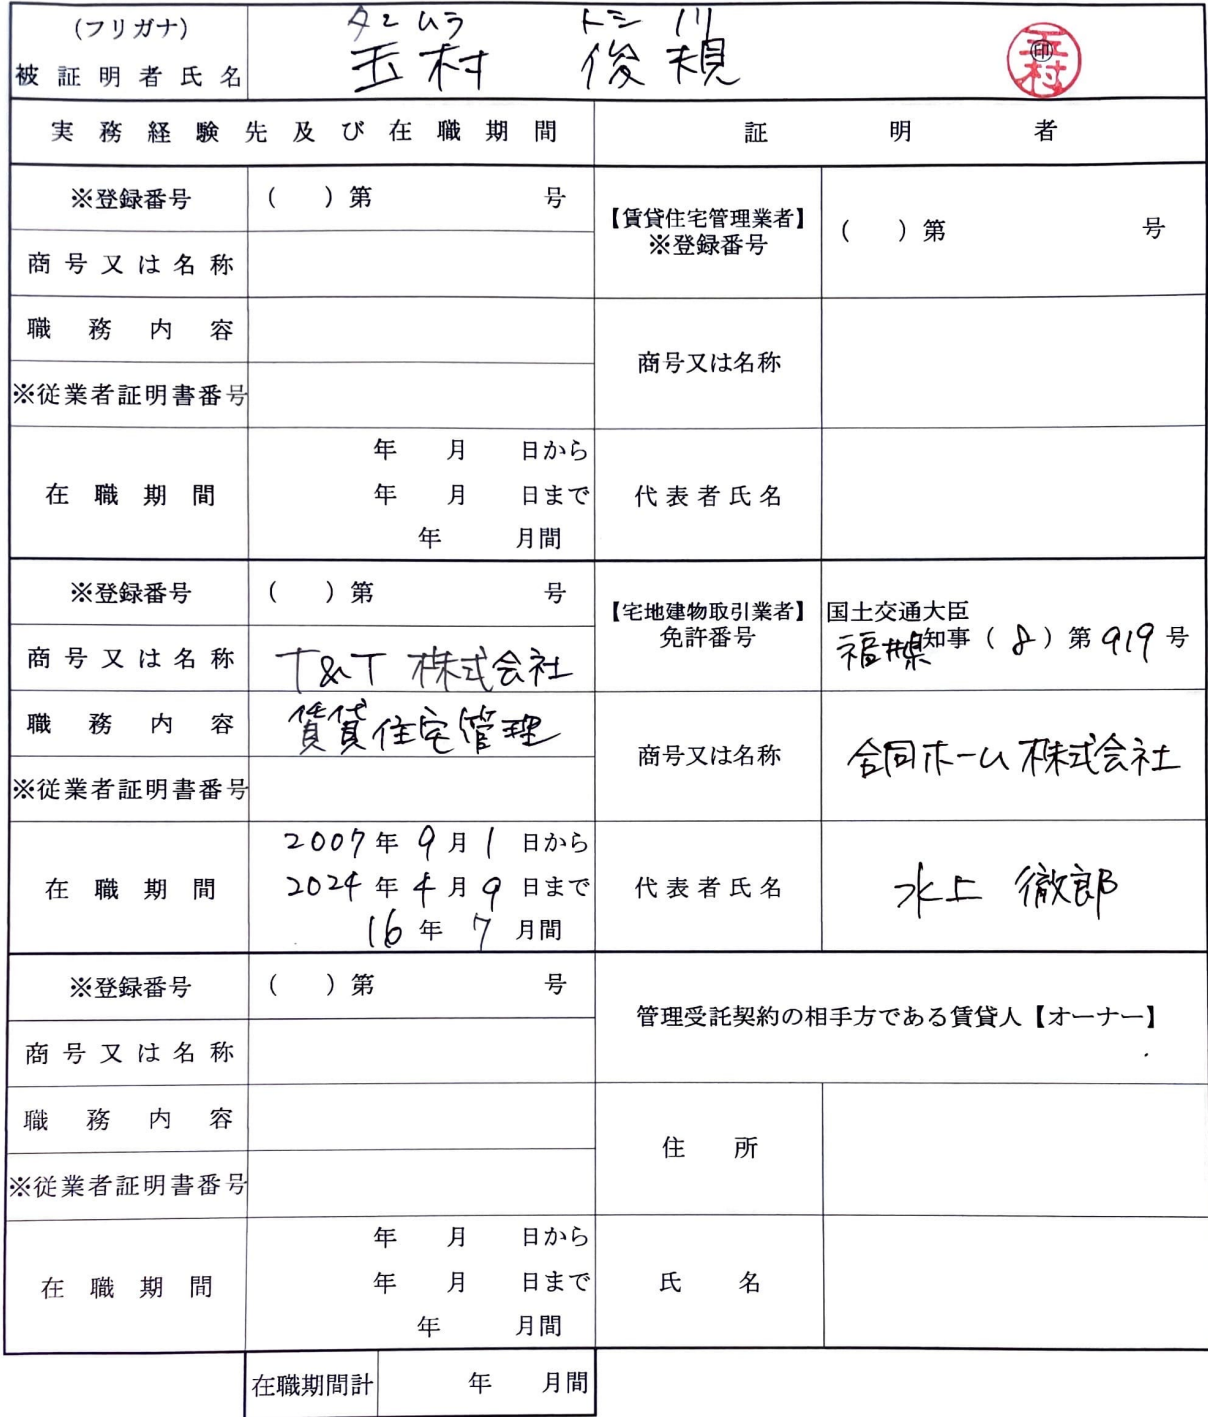 (フリガナ) タマムラ トシノリ
被証明者氏名 玉村 俊規 印 玉村
実務経験先及び在職期間 証明者
※登録番号 ( )第 号
【賃貸住宅管理業者】
※登録番号
( )第 号
商号又は名称
職務内容
商号又は名称
※従業者証明書番号
在職期間
年 月 日から
年 月 日まで
年 月間
代表者氏名
※登録番号 ( )第 号
【宅地建物取引業者】
免許番号
国土交通大臣
福井県知事(8)第919号
商号又は名称 T&T 株式会社
職務内容 賃貸住宅管理
商号又は名称 合同ホーム株式会社
※従業者証明書番号
在職期間
2007年9月1日から
2024年4月9日まで
16年7月間
代表者氏名 水上 徹郎
※登録番号 ( )第 号
管理受託契約の相手方である賃貸人【オーナー】
商号又は名称
職務内容
住所
※従業者証明書番号
在職期間
年 月 日から
年 月 日まで
年 月間
氏名
在職期間計 年 月間